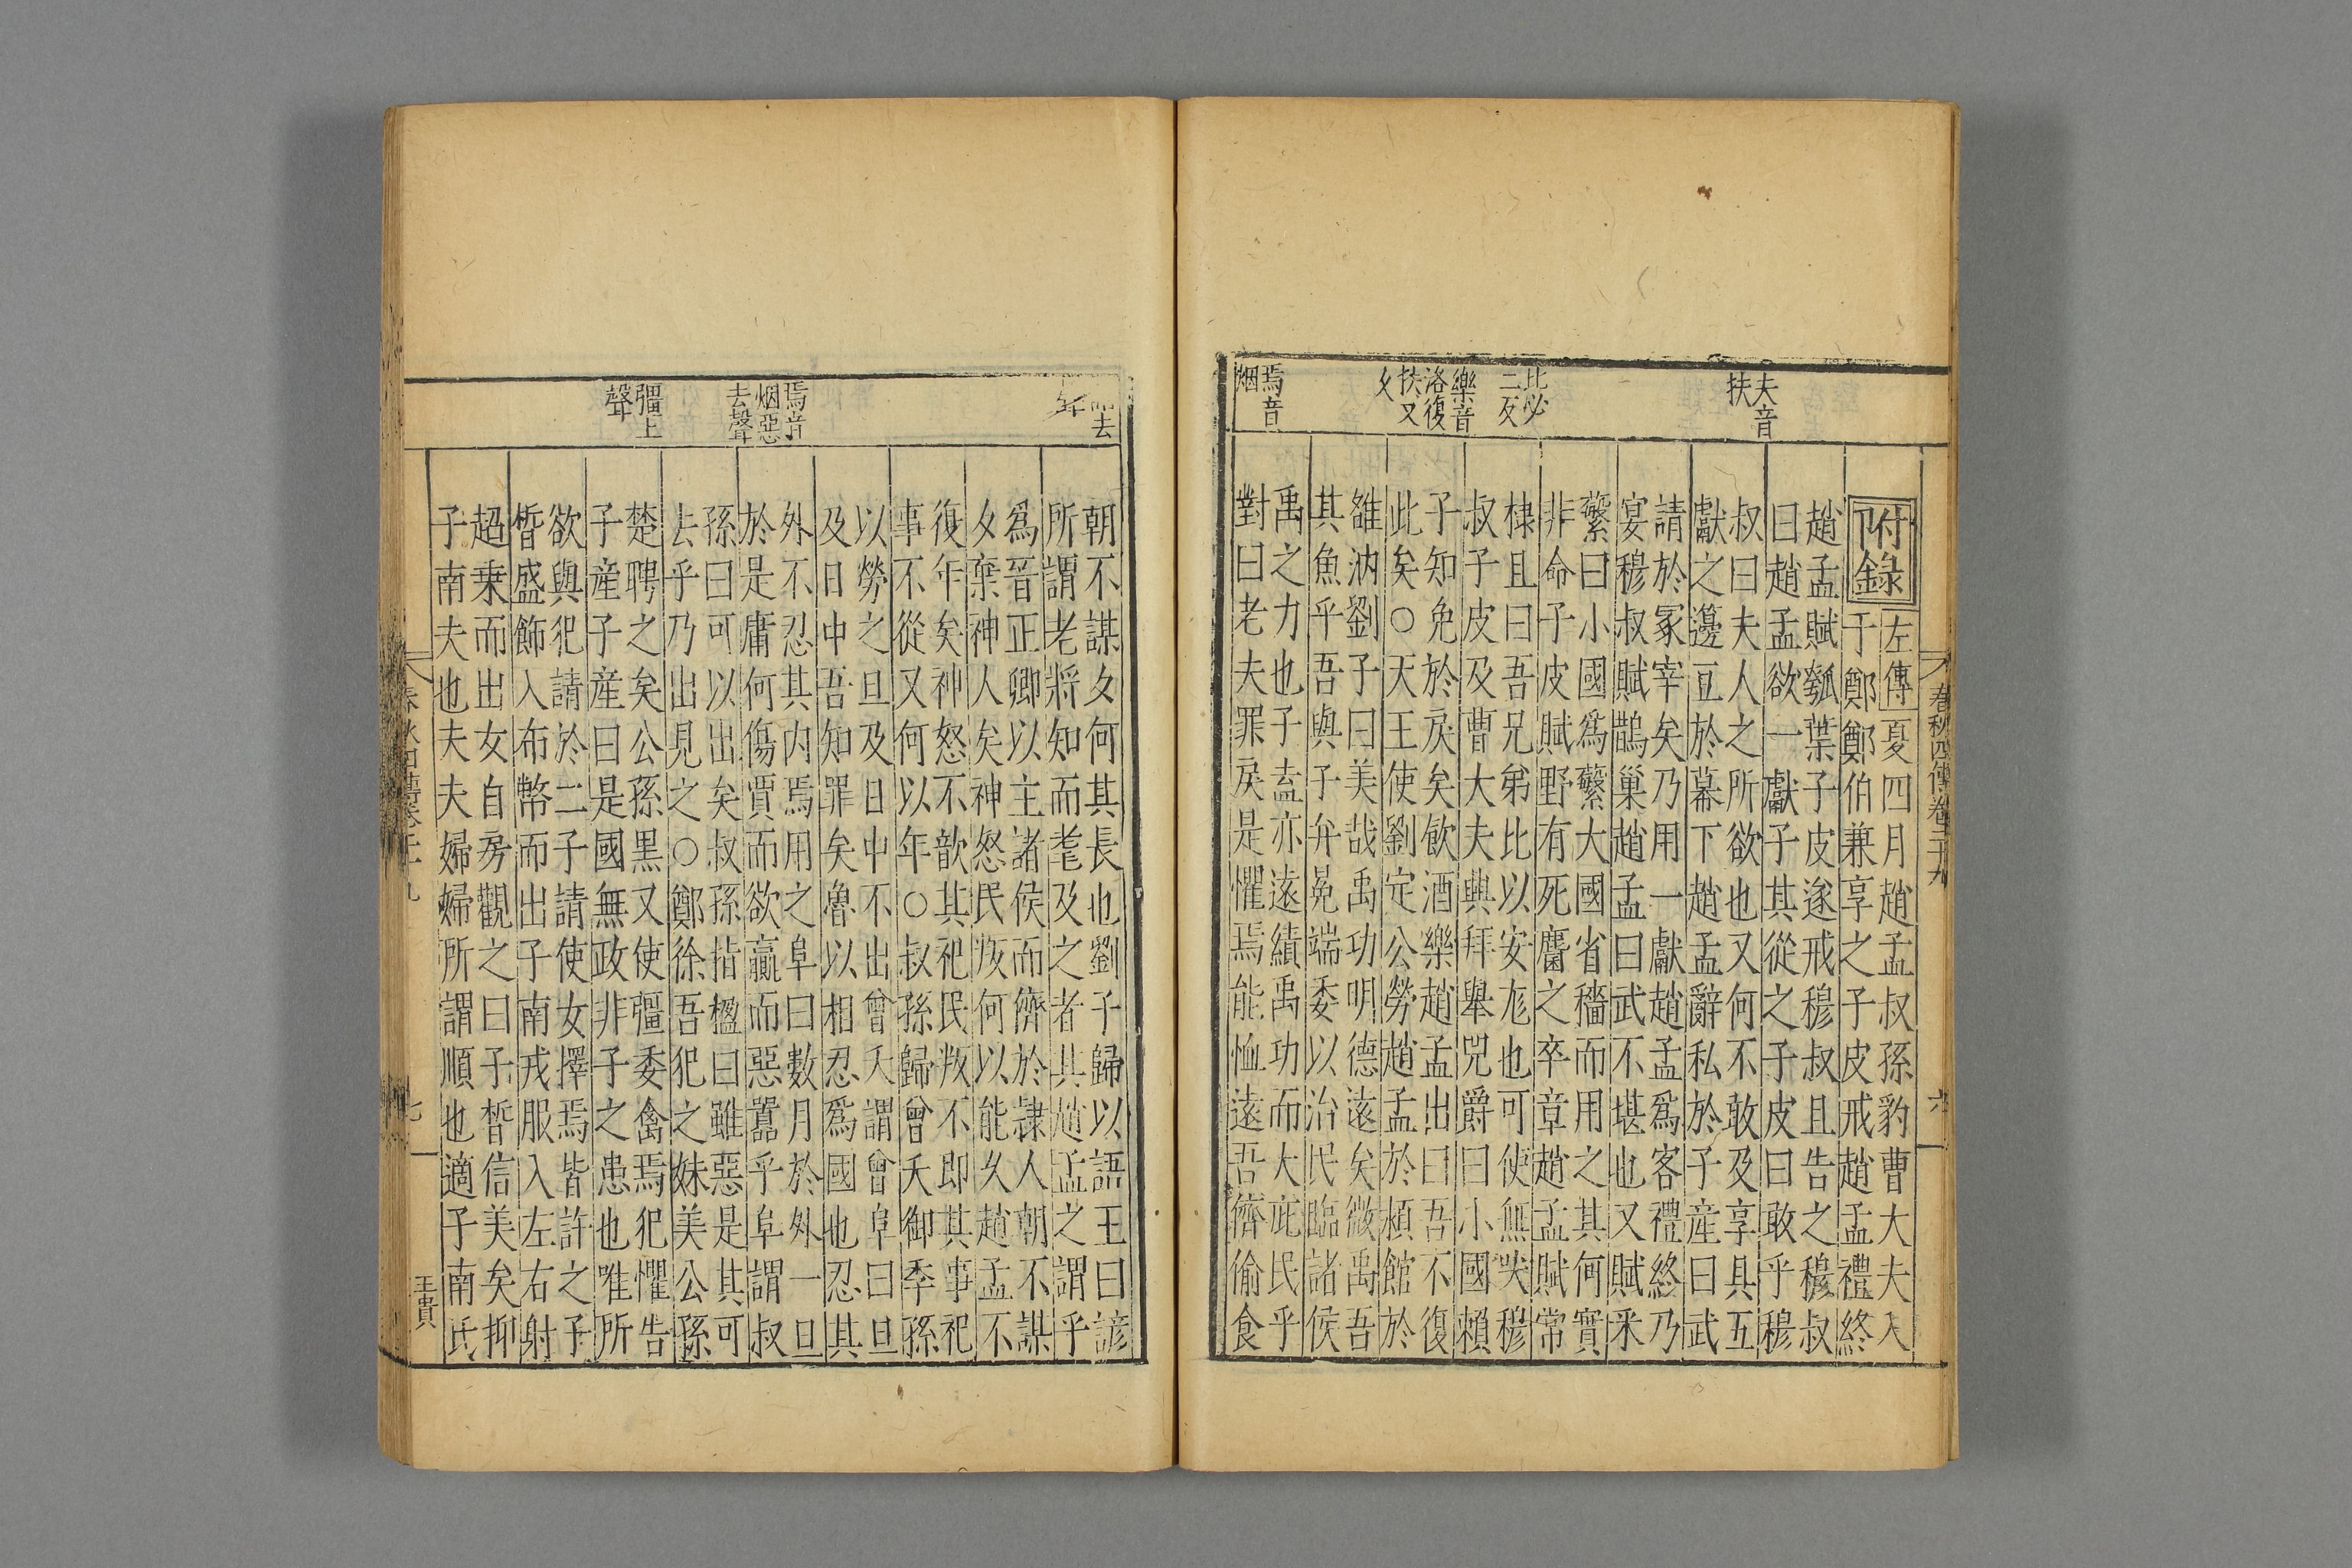 春秋四傳卷二十九
六
夫音
扶
比必
二反
樂音
洛復
扶又
反
焉音
烟
附錄
左傳夏四月趙孟叔孫豹曹大夫入
于鄭鄭伯兼享之子皮戒趙孟禮終
趙孟賦瓠葉子皮遂戒穆叔且告之穆叔
曰趙孟欲一獻子其從之子皮曰敢乎穆
叔曰夫人之所欲也又何不敢及享具五
獻之籩豆於幕下趙孟辭私於子産曰武
請於冢宰矣乃用一獻趙孟爲客禮終乃
宴穆叔賦鵲巢趙孟曰武不堪也又賦采
蘩曰小國爲蘩大國省穡而用之其何實
非命子皮賦野有死麕之卒章趙孟賦常
棣且曰吾兄弟比以安尨也可使無吠穆
叔子皮及曹大夫興拜舉兕爵曰小國賴
子知免於戾矣飲酒樂趙孟出曰吾不復
此矣○天王使劉定公勞趙孟於潁館於
雒汭劉子曰美哉禹功明德遠矣微禹吾
其魚乎吾與子弁冕端委以治民臨諸侯
禹之力也子盍亦遠績禹功而大庇民乎
對曰老夫罪戾是懼焉能恤遠吾儕偷食
去
聲
焉音
烟惡
去聲
彊上
聲
朝不謀夕何其長也劉子歸以語王曰諺
所謂老將知而耄及之者其趙孟之謂乎
爲晉正卿以主諸侯而儕於隷人朝不謀
夕棄神人矣神怒民叛何以能久趙孟不
復年矣神怒不歆其祀民叛不即其事祀
事不從又何以年○叔孫歸曾夭御季孫
以勞之旦及日中不出曾夭謂曾阜曰旦
及日中吾知罪矣魯以相忍爲國也忍其
外不忍其内焉用之阜曰數月於外一旦
於是庸何傷賈而欲贏而惡囂乎阜謂叔
孫曰可以出矣叔孫指楹曰雖惡是其可
去乎乃出見之○鄭徐吾犯之妹美公孫
楚聘之矣公孫黑又使彊委禽焉犯懼告
子産子産曰是國無政非子之患也唯所
欲與犯請於二子請使女擇焉皆許之子
皙盛飾入布幣而出子南戎服入左右射
超乗而出女自房觀之曰子皙信美矣抑
子南夫也夫夫婦婦所謂順也適子南氏
春秋四傳卷二十九
七
王貴